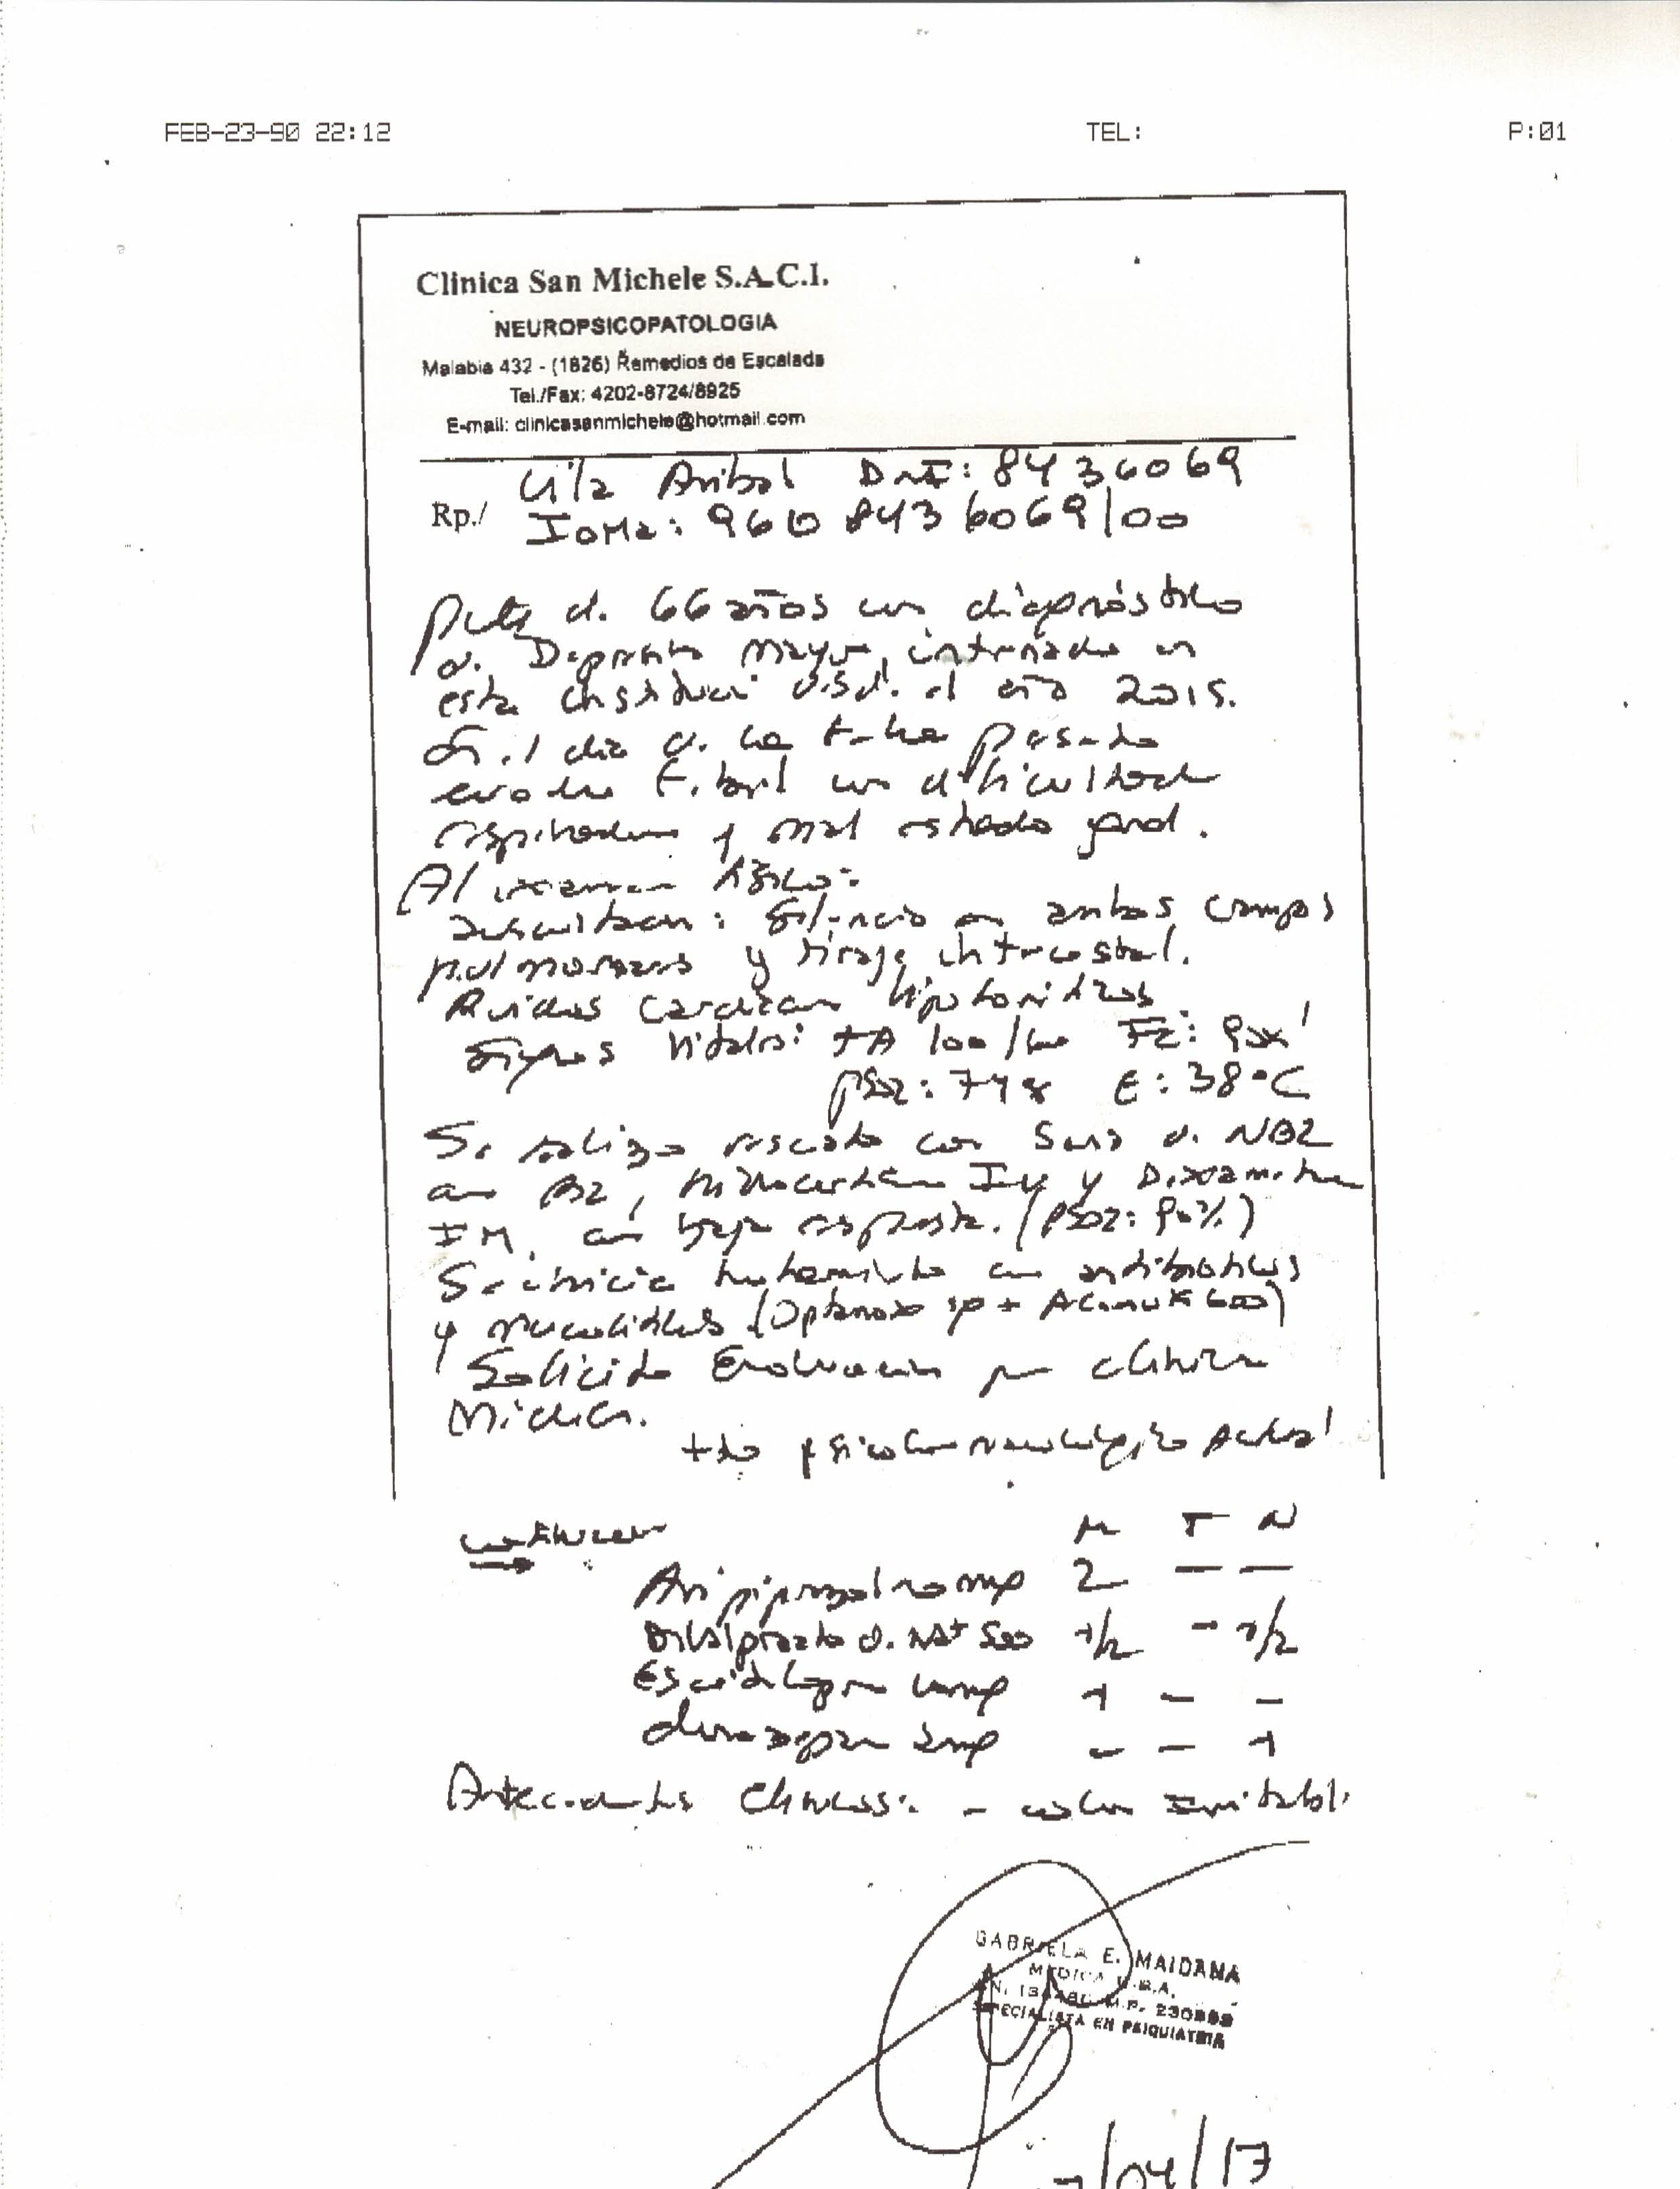 FEB-23-90 22:12 TEL: P:01
Clinica San Michele S.A.C.I.
NEUROPSICOPATOLOGIA
Malabia 432 - (1826) Remedios de Escalada
Tel./Fax: 4202-8724/8925
E-mail: clinicasanmichele@hotmail.com
Anibal DNI: 8436069
Rp./ IOMA: 960 8436069/00
de 66 años con diagnóstico
de Depresión Mayor, internado en
esta institución desde el año 2015.
En el día de la fecha
febril con dificultad
respiratoria y mal estado gral.
Al examen físico:
auscultación: Silencio en ambos campos
pulmonares y tiraje intercostal.
Ruidos cardíacos hipofonéticos
Signos Vitales: TA 100/60 FC: 90x'
PSO2: 74% T: 38°C
Se realiza rescate con de NBZ
con O2, Hidrocortisona IV y Dexametasona
IM, con baja respuesta. (PSO2: 90%)
Se inicia tratamiento con antibióticos
y mucolíticos (Optamox + Acemuk 600)
Solicito Evaluación por clínica
Médica.
tto psicofarmacológico actual
M T N
Aripiprazol mg 2 — —
Divalproato de Na+ 500 1/2 - 1/2
Escitalopram mg 1 - -
2mg - - 1
Antecedentes Clínicos: - colon Irritable
GABRIELA E. MAIDANA
MEDICA U.B.A.
M.P.
ESPECIALISTA EN PSIQUIATRIA
/04/17